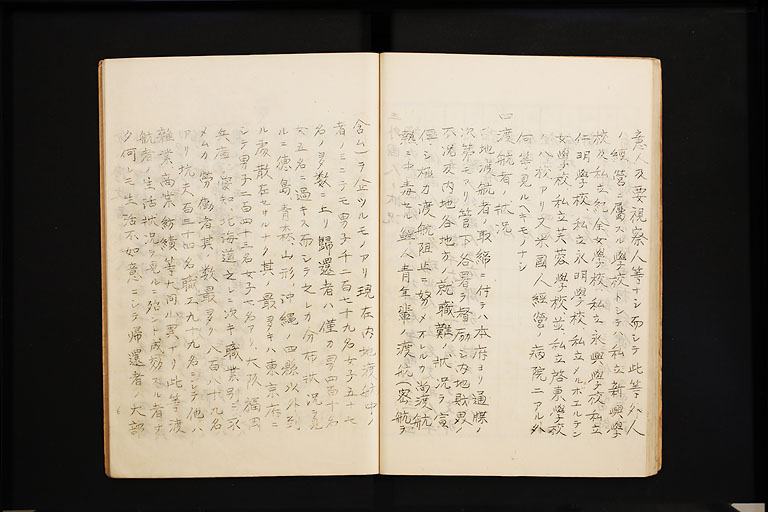 意人及要視察人等ナシ而シテ此等外人
ノ經營ニ屬スル學校トシテ私立新興學
校及私立紀全女學校、私立永興學校私立
仁明學校私立永明學校私立メルボエルテン
女學校私立芙蓉學校並私立啓東學校
ノ八校アリ又米國人經營ノ病院ニアル外
何等見ルヘキモノナシ
四 渡航者ノ狀況
内地渡航者ノ取締ニ付テハ本府ヨリ通牒ノ
次第モアリ管下各署ヲ督励シ内地財界ノ
不况及内地各地方ノ就職難ノ狀況ヲ宣
傳シ極力渡航阻止ニ努メオルカ尚渡航
熱ニ中毒セル鮮人青年輩ノ渡航(密航ヲ
含ム)ヲ企ツルモノアリ現在内地渡航中ノ
者ノミニテモ男子千二百七十九名女子五十七
名ノ多数ニ上リ歸還者ハ僅カ男四百十名
女五名ニ過キス而シテ之レカ分布狀況ヲ見
ルニ徳島、青森、山形、沖縄ノ四縣以外到
ル處散在セサルナク其ノ最多キハ東京府ニ
シテ男子二百四十三名女子七名アリ、大阪、福岡
兵庫、愛知、北海道之レニ次キ職業別ニ求
メムカ勞働者其ノ数最多ク八百八十九名
アリ坑夫百三十四名職工九十九名ニシテ他ハ
雜業商業紡績等大同小異ナリ此等渡
航者ノ生活狀況ヲ見ルニ殆ント成功スル者ナ
ク何レモ生活不如意ニシテ帰還者ノ大部